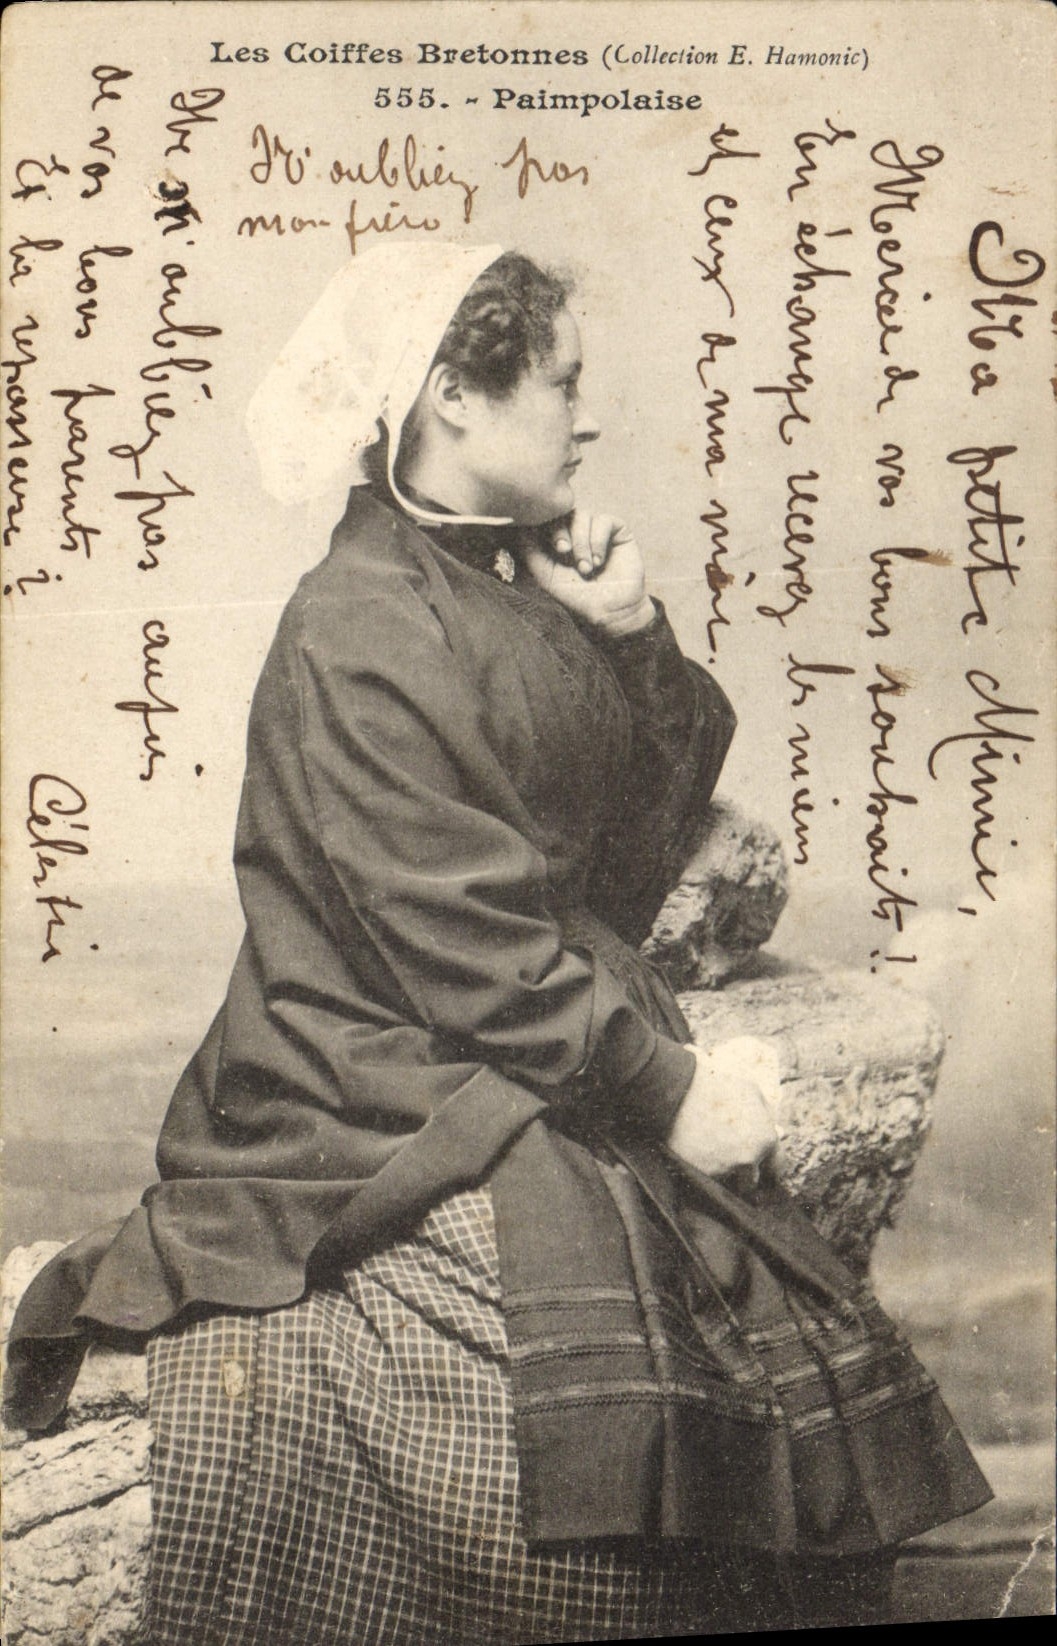 Les Coiffes Bretonnes (Collection E. Hamonic)
555. - Paimpolaise
Ma petite Mimie,
Merci de vos bons souhaits !
En échange recevez les miens
et ceux de ma mère.
N'oubliez pas
mon frère
Ne m'oubliez pas auprès
de vos bons parents
Et la repasseuse ?
Célestin